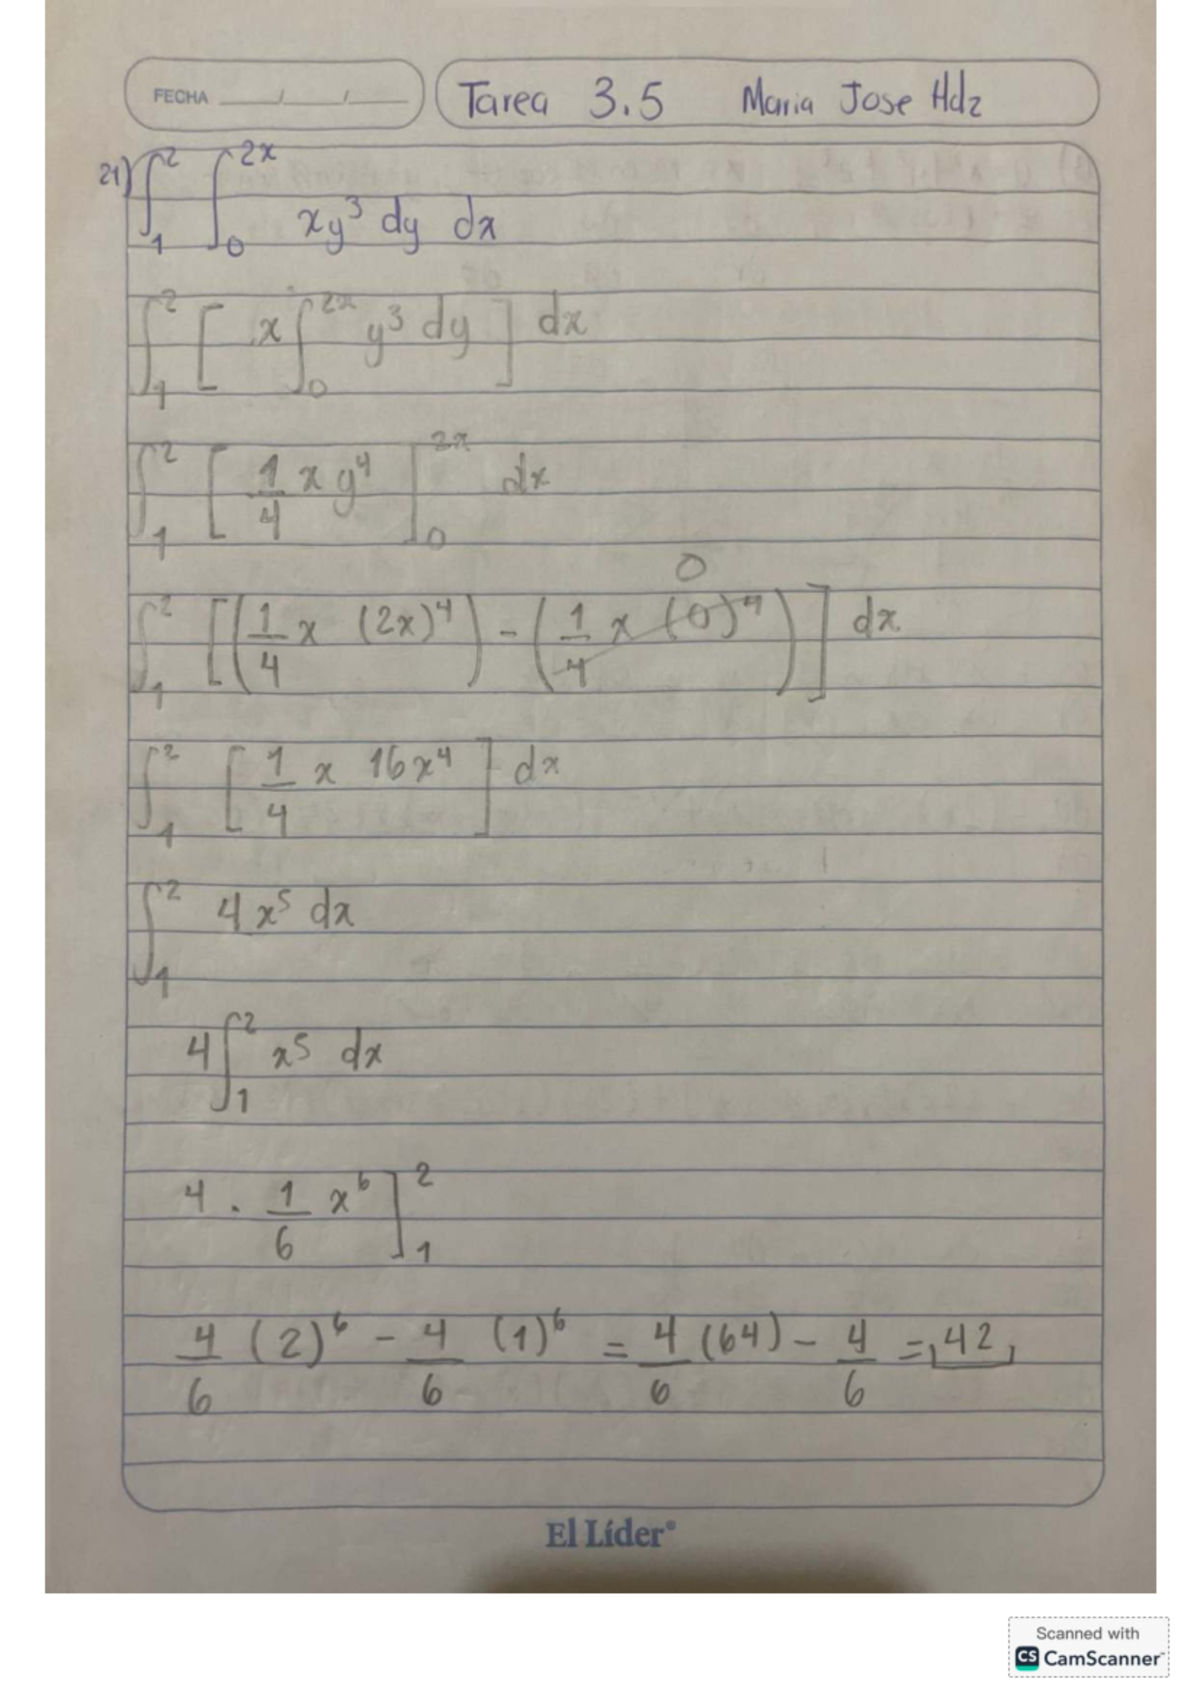 FECHA ___/___/___ Tarea 3.5 Maria Jose Hdz
21) ∫₁² ∫₀²ˣ xy³ dy dx
∫₁² [ x ∫₀²ˣ y³ dy ] dx
∫₁² [ 1/4 x y⁴ ]₀²ˣ dx
0
∫₁² [ (1/4 x (2x)⁴) - (1/4 x (0)⁴) ] dx
∫₁² [ 1/4 x 16x⁴ ] dx
∫₁² 4x⁵ dx
4 ∫₁² x⁵ dx
4 · 1/6 x⁶ ]₁²
4/6 (2)⁶ - 4/6 (1)⁶ = 4/6 (64) - 4/6 = 42
El Líder®
Scanned with
CS CamScanner™